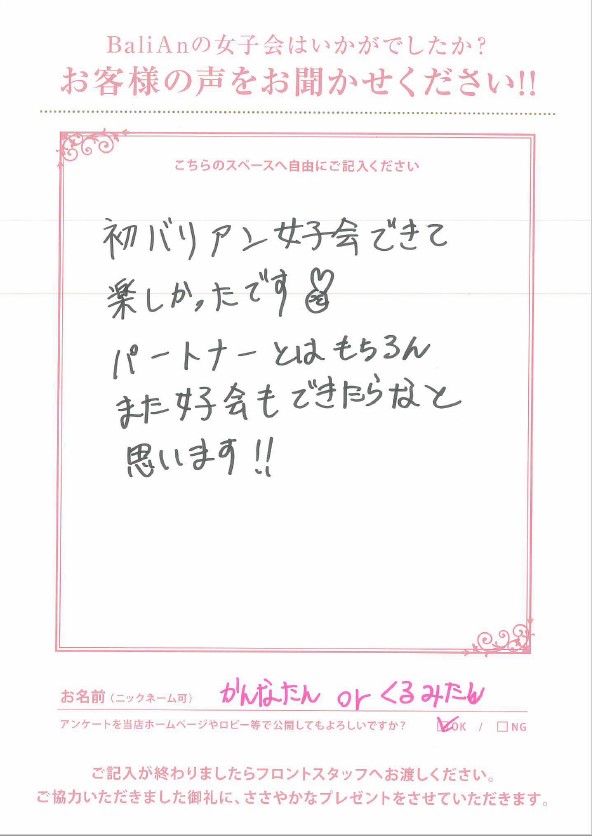 BaliAnの女子会はいかがでしたか?
お客様の声をお聞かせください!!
こちらのスペースへ自由にご記入ください
初バリアン女子会できて
楽しかったです
パートナーとはもちろん
また女子会もできたらなと
思います!!
お名前(ニックネーム可) かんなたん or くるみたん
アンケートを当店ホームページやロビー等で公開してもよろしいですか? OK / NG
ご記入が終わりましたらフロントスタッフへお渡しください。
ご協力いただきました御礼に、ささやかなプレゼントをさせていただきます。